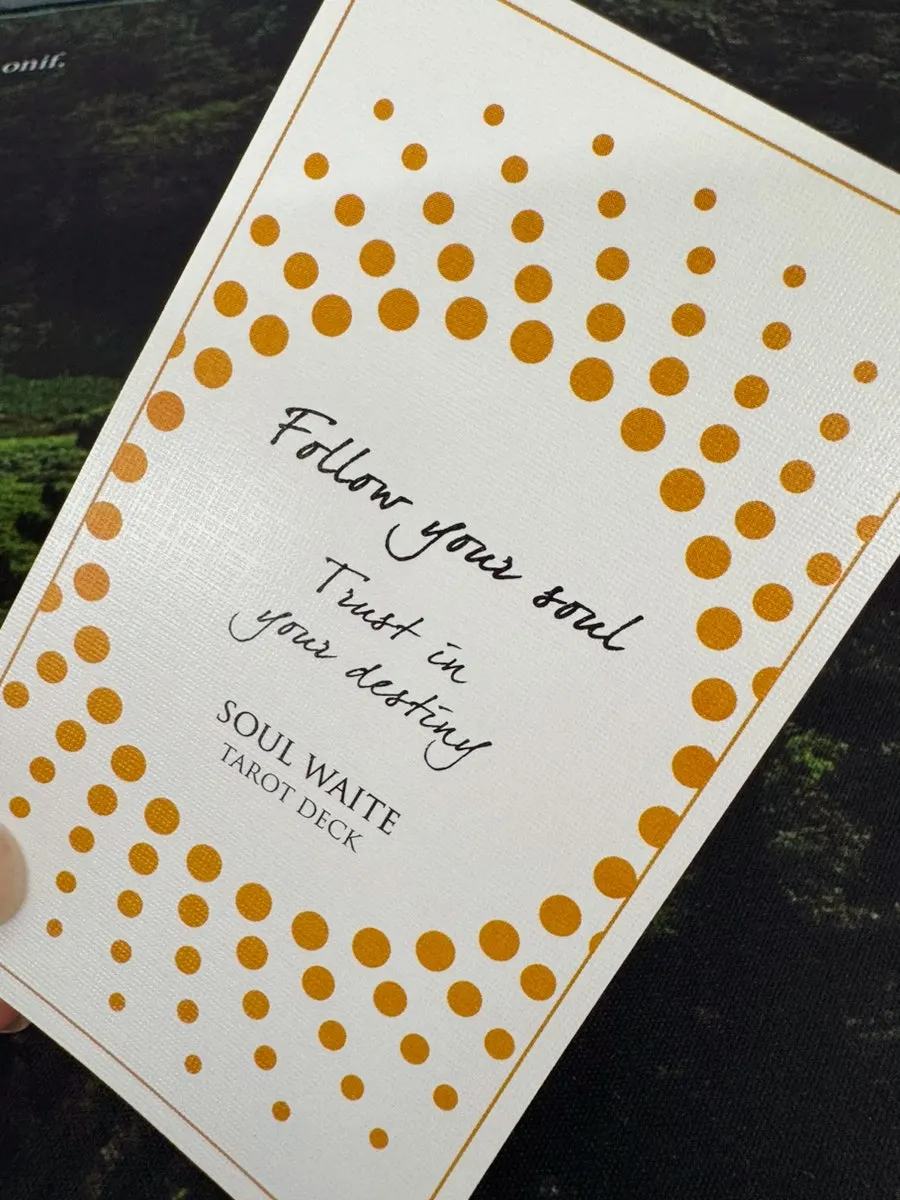 onif.
Follow your soul
Trust in
your destiny
SOUL WAITE
TAROT DECK